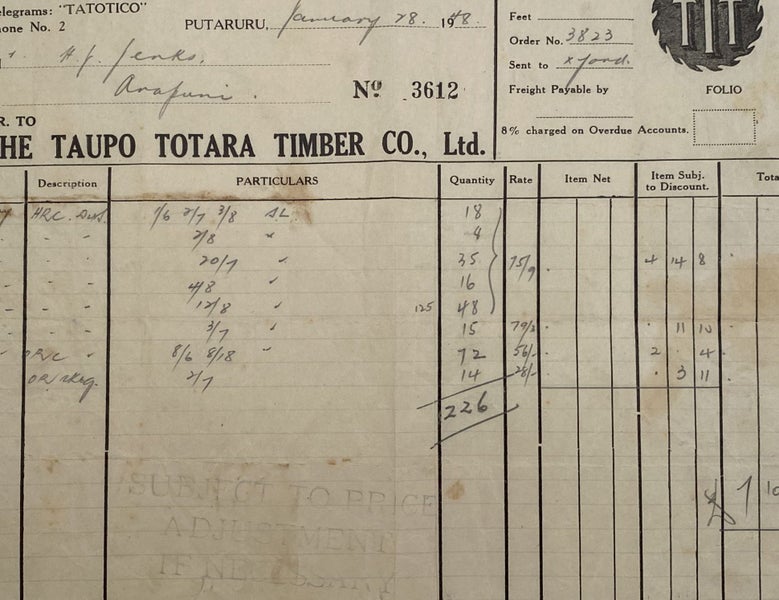 elegrams: "TATOTICO"
hone No. 2
PUTARURU, January 28. 1948.
H.J. Jenks.
Arapuni.
Nº 3612
Feet
Order No. 3823
Sent to x yard.
Freight Payable by
8% charged on Overdue Accounts.
TTT
FOLIO
R. TO
HE TAUPO TOTARA TIMBER CO., Ltd.
Description PARTICULARS Quantity Rate Item Net Item Subj. to Discount. Tota
1/6 3/7 3/8 18
2/8 " 4
20/7 " 35 75/9 4 14 8
4/8 " 16
12/8 " 125 48
3/7 " 15 11 10
8/6 8/18 " 72 56/- 2 . 4
2/7 14 28/- . 3 11
226
£ 7 10
SUBJECT TO PRICE
ADJUSTMENT
IF NECESSARY